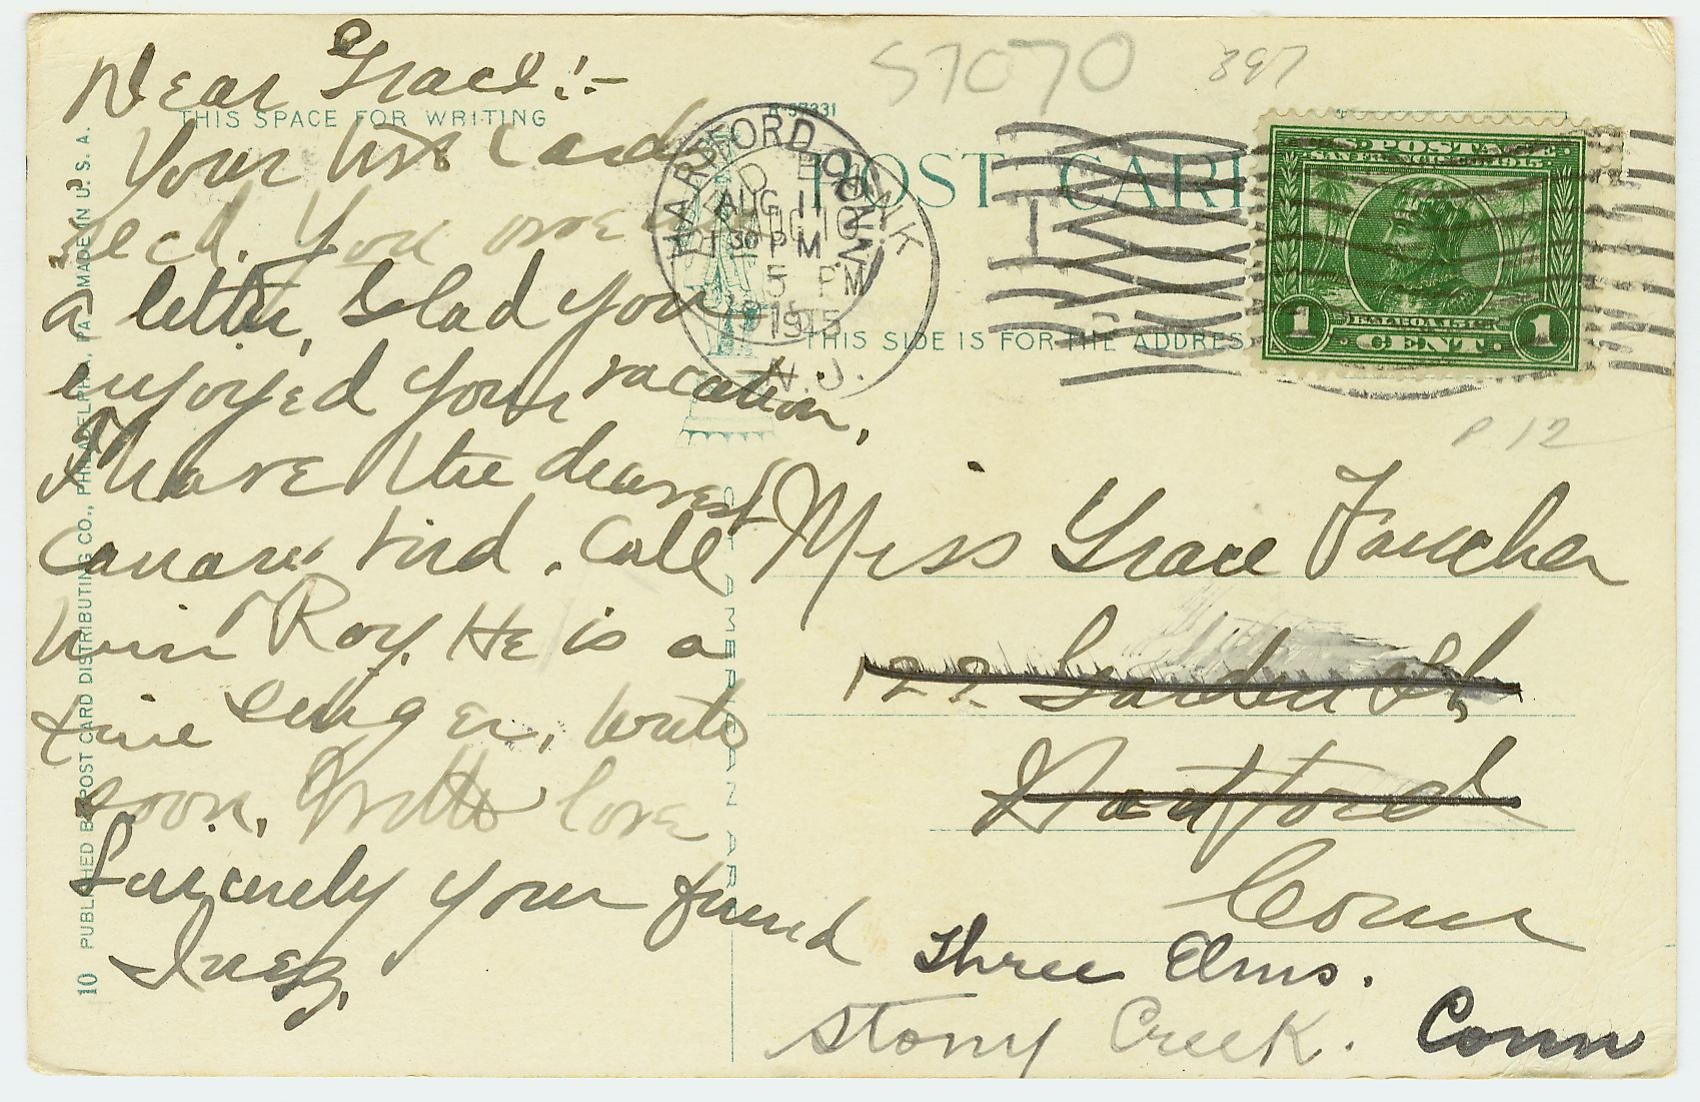 Dear Grace:-
Your last card
rec'd. You owe me
a letter, Glad you
enjoyed your vacation.
I have the dearest
canary bird. Call
him Roy. He is a
fine singer, write
soon, With love
Sincerely your friend
Inez.
THIS SPACE FOR WRITING
10 PUBLISHED BY POST CARD DISTRIBUTING CO., PHILADELPHIA, PA. MADE IN U. S. A.
57070
397
R-57331
POST CARD
THIS SIDE IS FOR THE ADDRESS
HARTFORD CONN
AUG 11
30 PM
1915
5 PM
1915
N.J.
U.S. POSTAGE
SAN FRANCISCO 1915
BALBOA 1513
1 CENT 1
P 12
Miss Grace Faucher
122 Garden St,
Hartford
Conn
Three Elms.
Stony Creek. Conn
AMERICAN ART